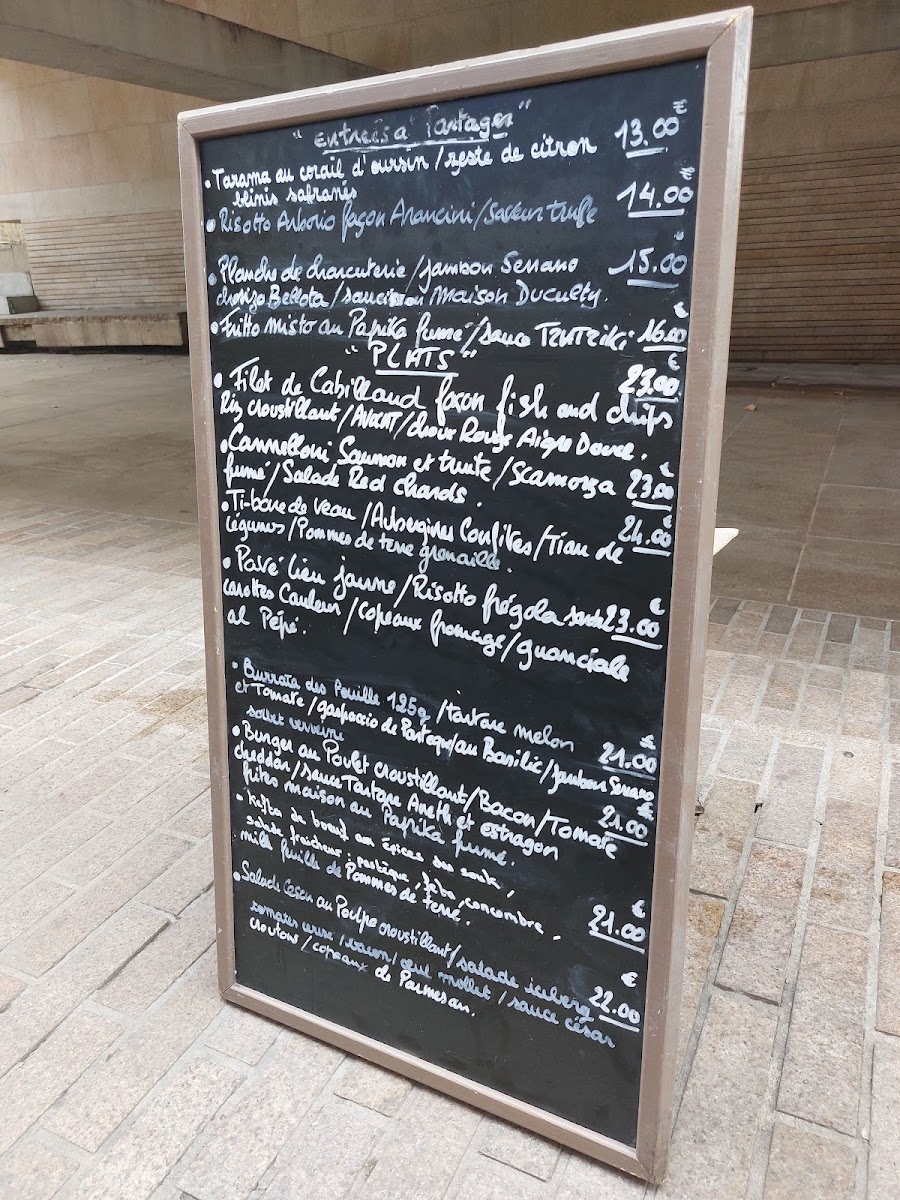 "entrées à Partager"
• Tarama au corail d'oursin / zeste de citron 13.00 €
blinis safranés
• Risotto Arborio façon Arancini / saveur truffe 14.00 €
• Planche de charcuterie / jambon Serrano 15.00
chorizo Bellota / saucisson Maison Duculty.
• Fritto misto au Paprika fumé / sauce TZATZIKI 16.00 €
"PLATS"
• Filet de Cabillaud façon fish and chips 23.00 €
Riz croustillant / AVOCAT / choux Rouge Aigre Douce.
• Cannelloni Saumon et truite / scamorza 23.00 €
fumé / Salade Red Chards
• Ti-bone de veau / Aubergines Confites / Tian de 24.00 €
légumes / Pommes de terre grenaille.
• Pavé lieu jaune / Risotto frégola sarde 23.00 €
carottes Couleur / copeaux fromage / guanciale
al Pépé.
• Burrata des Pouille 125g / tartare melon
et Tomate / gaspacio de Pastèque au Basilic / jambon Serrano 21.00 €
sorbet verveine
• Burger au Poulet croustillant / Bacon / Tomate 21.00 €
cheddar / sauce Tartare Aneth et estragon
frites maison au Paprika fumé.
• Kefta de boeuf aux épices des souk,
salade fraicheur : pastèque, féta, concombre. 21.00 €
mille feuille de Pommes de terre.
• Salade César au Poulpe croustillant / salade iceberg 22.00 €
tomates / bacon / œuf mollet / sauce césar
croutons / copeaux de Parmesan.